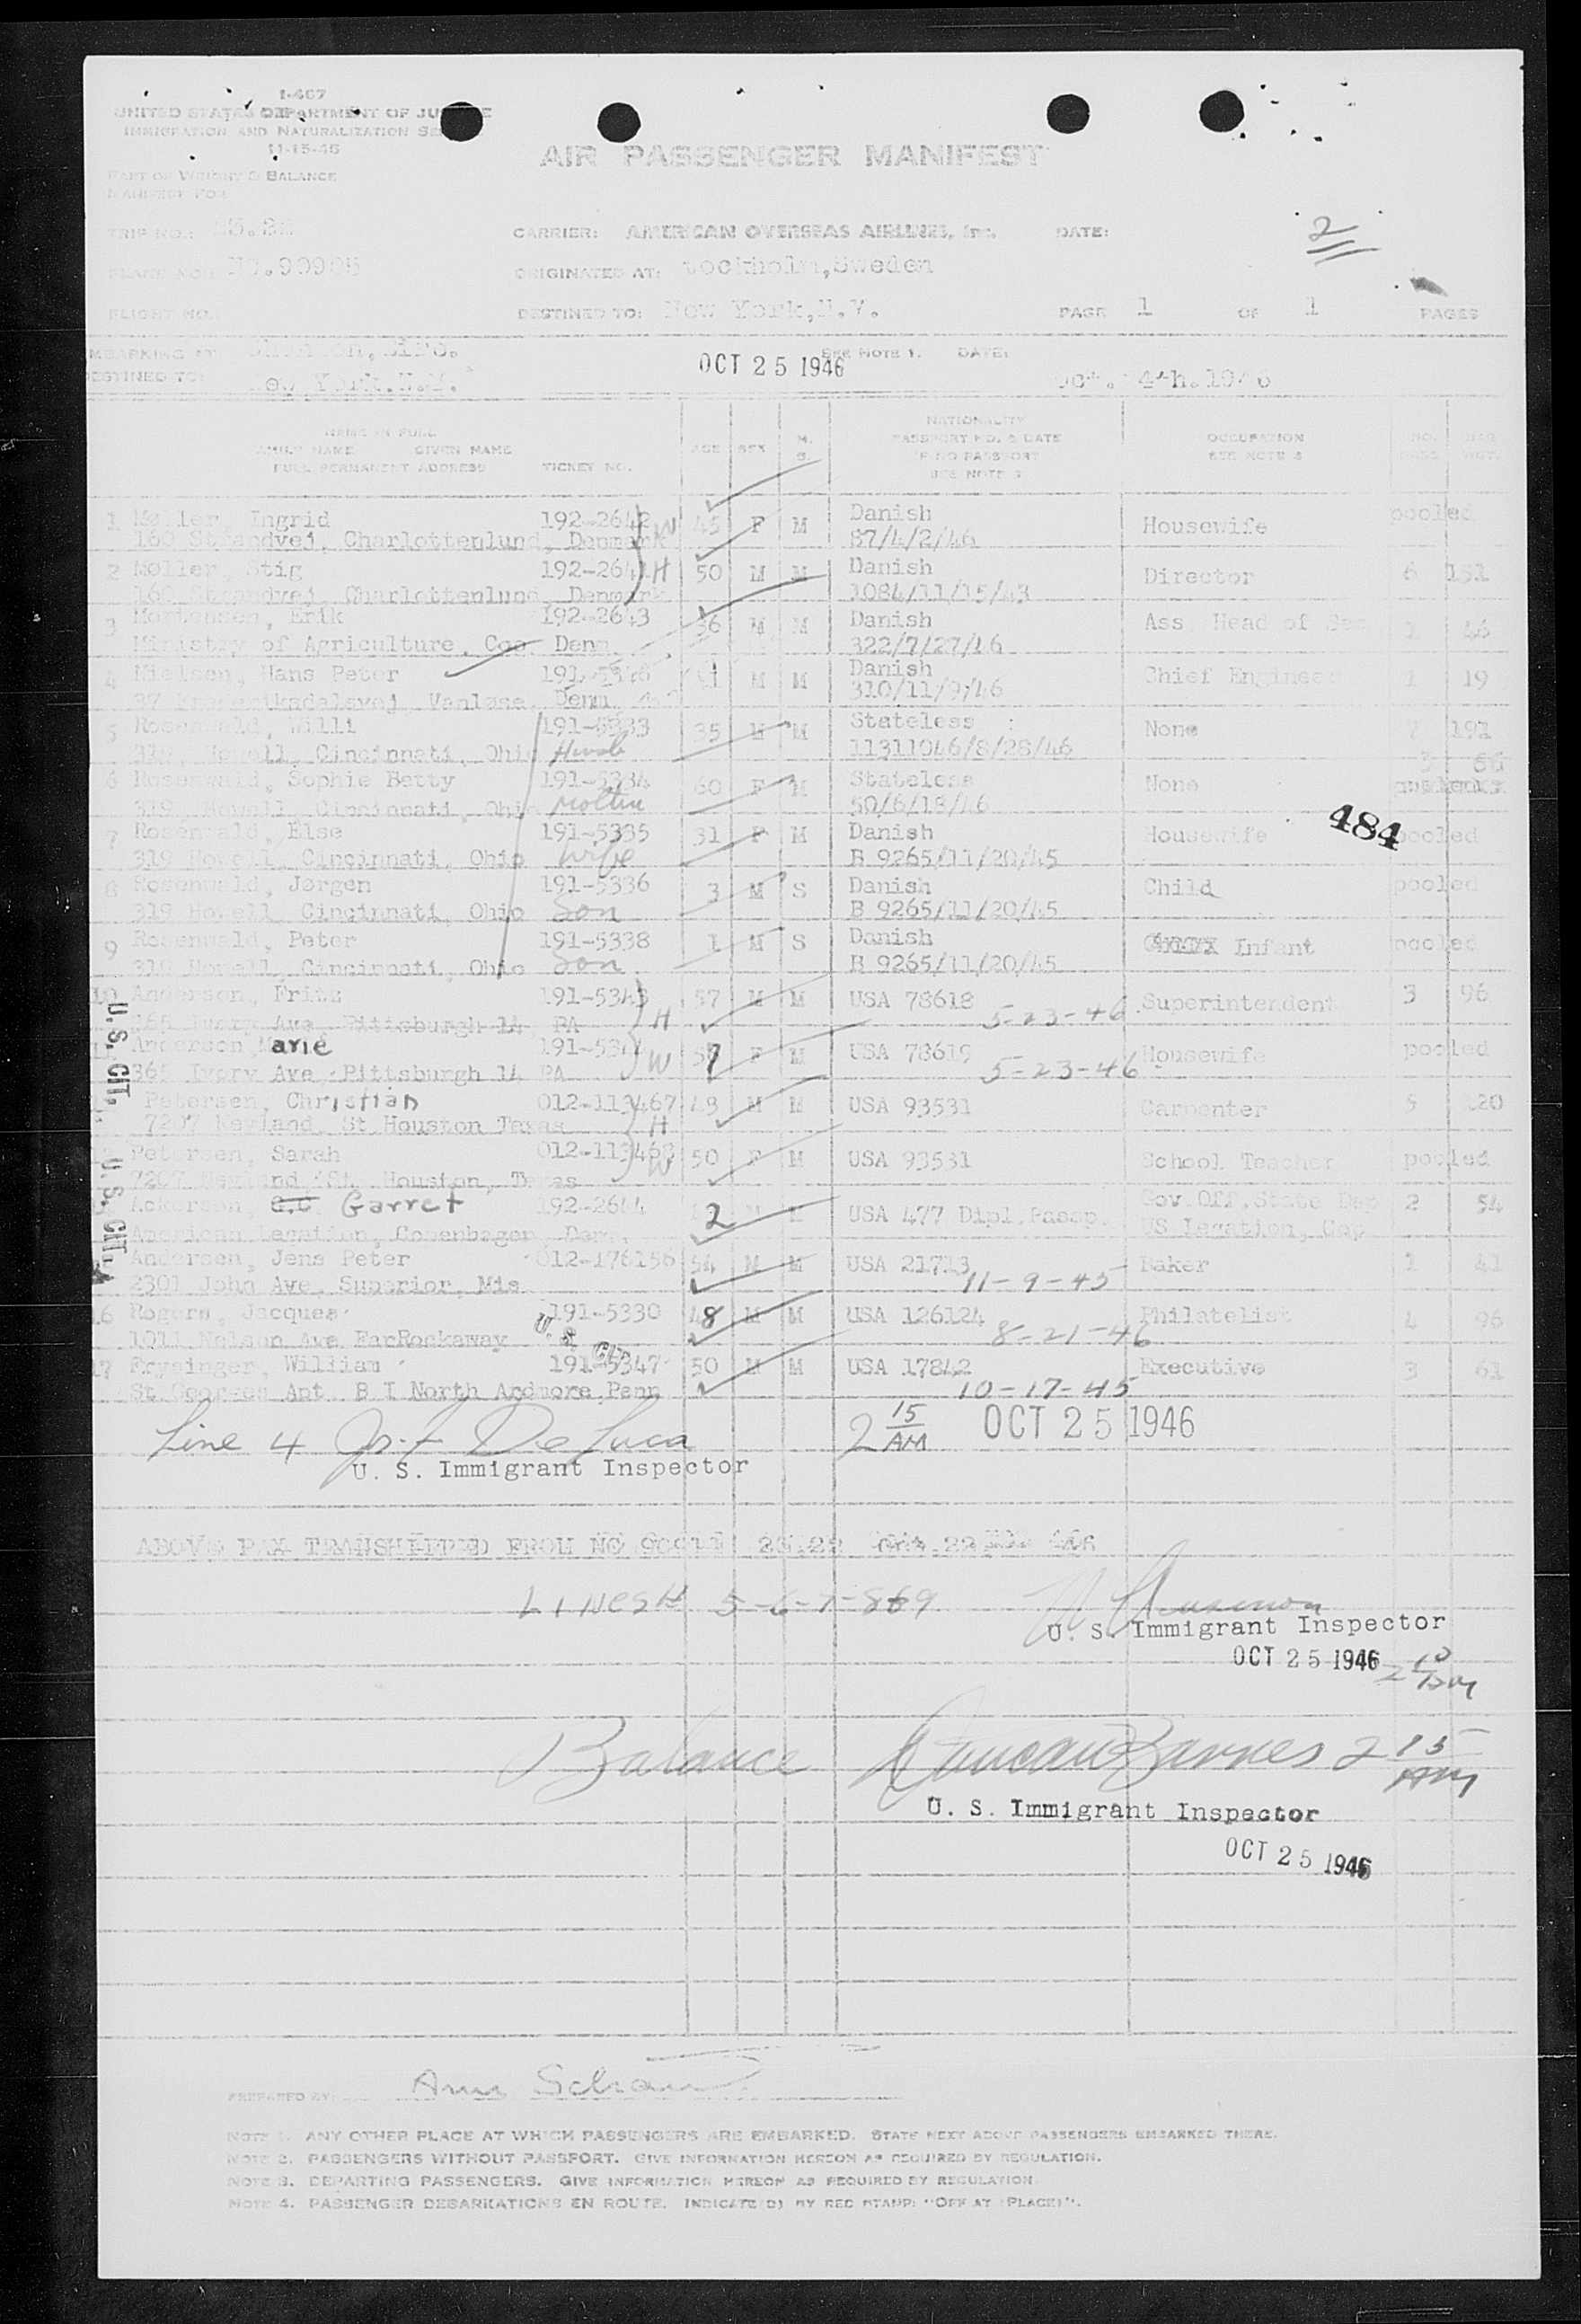 I-467
UNITED STATES DEPARTMENT OF JUSTICE
IMMIGRATION AND NATURALIZATION SE
11-15-46
PART OF WEIGHT & BALANCE
MANIFEST FOR
AIR PASSENGER MANIFEST
2
TRIP NO.:
CARRIER: AMERICAN OVERSEAS AIRLINES, Inc. DATE:
PLANE NO.: NC.90905 ORIGINATED AT: tockholm,Sweden
FLIGHT NO.: DESTINED TO: New York,N.Y. PAGE 1 OF 1 PAGES
EMBARKING AT: SEE NOTE 1. DATE:
DESTINED TO: New York.N.Y. OCT 25 1946 1946
NAME IN FULL
FAMILY NAME GIVEN NAME
FULL PERMANENT ADDRESS TICKET NO. AGE SEX M. S. NATIONALITY PASSPORT NO. & DATE IF NO PASSPORT SEE NOTE 2 OCCUPATION SEE NOTE 3 NO. BAGS BAG WGT.
1 Møller, Ingrid 192-2642 W 45 F M Danish Housewife pooled
160 Strandvej, Charlottenlund, Denmark 87/4/2/46
2 Møller, Stig 192-2641 H 50 M M Danish Director 6 151
160 Strandvej, Charlottenlund, Denmark 1084/11/15/43
3 Mortensen, Erik 192-2643 36 M M Danish Ass. Head of 1 46
Ministry of Agriculture, Cop. Denm. 322/7/27/46
4 Nielsen, Hans Peter M M Danish Chief Engineer 1 19
Vanløse, Denm 310/11/9/46
5 Rosenwald, Willi 191-5333 35 M M Stateless None 191
319 Howell, Cincinnati, Ohio Husb 11311046/8/28/46
6 Rosenwald, Sophie Betty 191-5334 60 F M Stateless None 3 66
319 Howell, Cincinnati, Ohio Mother 50/6/18/46
484
7 Rosenwald, Else 191-5335 31 F M Danish Housewife pooled
319 Howell, Cincinnati, Ohio Wife B 9265/11/20/45
8 Rosenwald, Jørgen 191-5336 3 M S Danish Child pooled
319 Howell, Cincinnati, Ohio Son B 9265/11/20/45
9 Rosenwald, Peter 191-5338 1 M S Danish Infant pooled
319 Howell, Cincinnati, Ohio Son B 9265/11/20/45
10 Anderson, Fritz 191-5343 57 M M USA 78618 5-23-46 Superintendent 3 96
365 Ivory Ave, Pittsburgh 14 PA H
Anderson Marie W 57 F M USA 78619 5-23-46 Housewife pooled
365 Ivory Ave, Pittsburgh 14 PA
Petersen, Christian 012-113467 43 M M USA 93531 Carpenter 5
7207 St Houston Texas H
Petersen, Sarah 012-113468 W 50 F M USA 93531 School Teacher pooled
7207 St, Houston, Texas
Ackerson, G.C. Garret 192-2644 2 M M USA 477 Dipl.Passp. Gov.Off.State Dep 2 54
American Legation, Copenhagen, Den. US Legation, Cop
Andersen, Jens Peter 012-176156 54 M M USA 21713 11-9-45 Baker 1 41
2301 John Ave, Superior, Mis
16 Rogers, Jacques 191-5330 48 M M USA 126124 8-21-46 Philatelist 4 96
1011 Nelson Ave FarRockaway
17 Frysinger, William 191-5347 50 M M USA 17842 10-17-45 Executive 3 61
St Georges Apt B I North Ardmore Penn
U.S. CIT.
U.S. CIT.
U.S. CIT.
Line 4 Jos. F. De Luca 2 15 AM OCT 25 1946
U. S. Immigrant Inspector
ABOVE PAX TRANSHIPPED FROM NC
LINES# 5-6-7-8&9
U. S. Immigrant Inspector
OCT 25 1946 2 10 AM
Balance Duncan Barnes 2 15 AM
U. S. Immigrant Inspector
OCT 25 1946
PREPARED BY:
NOTE 1. ANY OTHER PLACE AT WHICH PASSENGERS ARE EMBARKED. STATE NEXT ABOVE PASSENGERS EMBARKED THERE.
NOTE 2. PASSENGERS WITHOUT PASSPORT. GIVE INFORMATION HEREON AS REQUIRED BY REGULATION.
NOTE 3. DEPARTING PASSENGERS. GIVE INFORMATION HEREON AS REQUIRED BY REGULATION.
NOTE 4. PASSENGER DEBARKATIONS EN ROUTE. INDICATE(D) BY RED STAMP: "OFF AT (PLACE)".